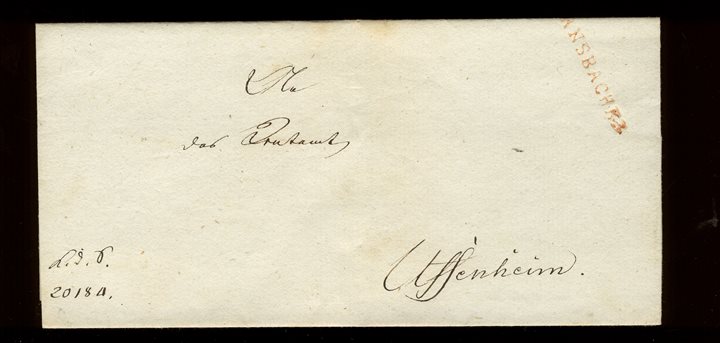 ANSBACH R3
An
das Rentamt
Uffenheim.
R. d. S.
20184.